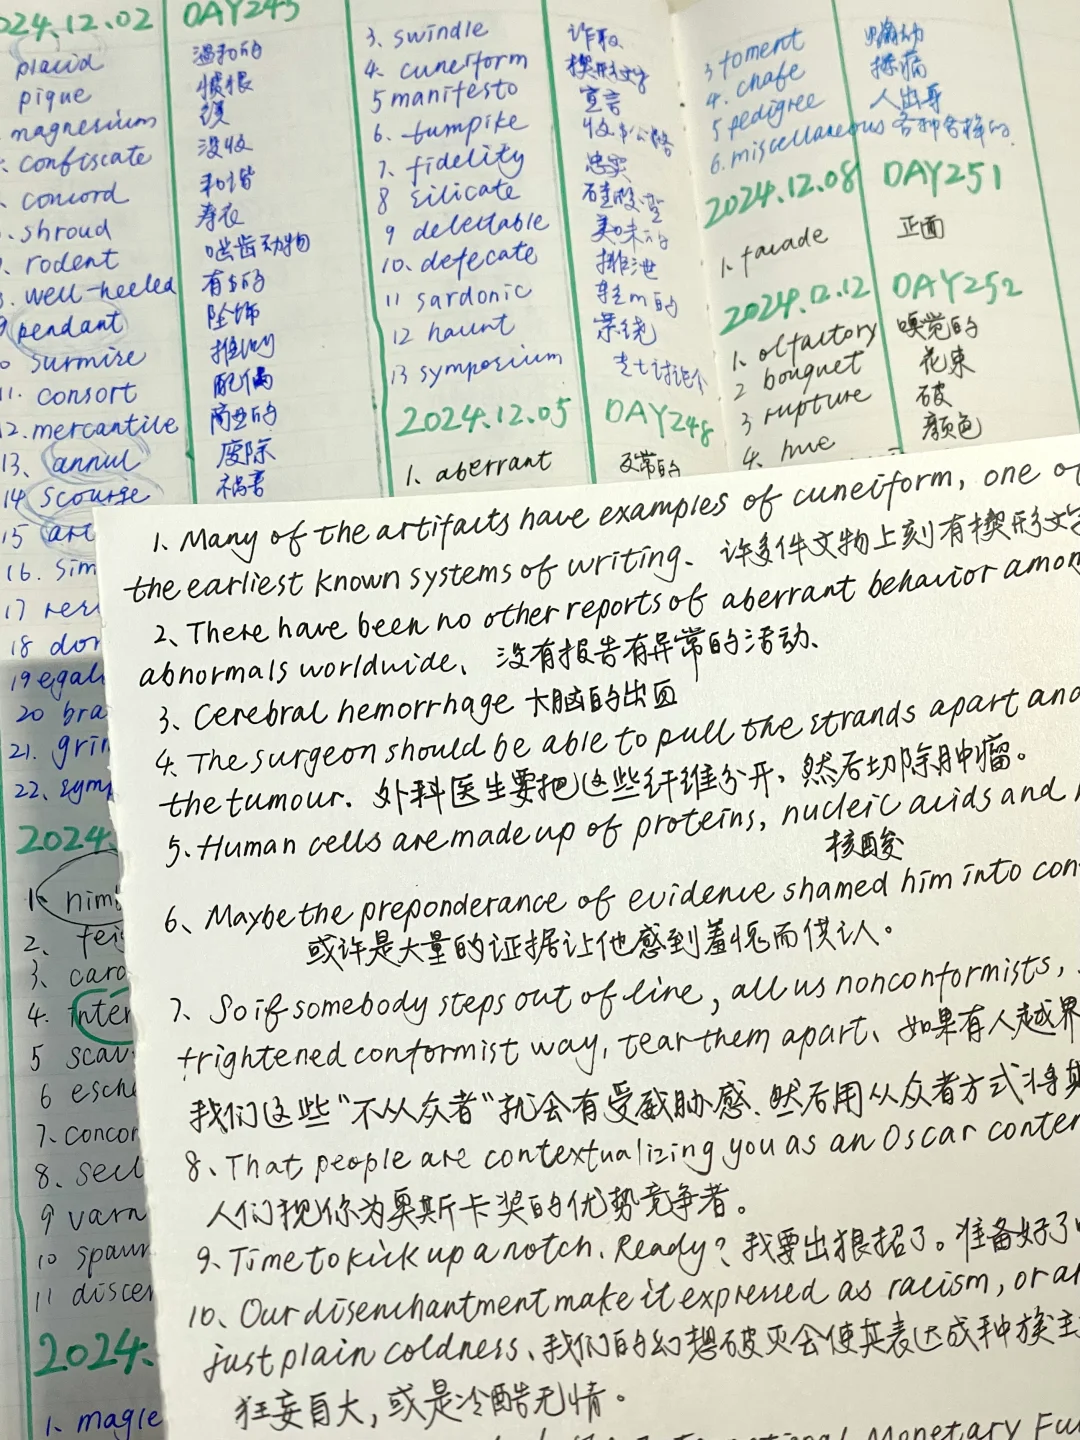 2024.12.02 DAY245
placid 温和的
pique 愤恨
magnesium 镁
confiscate 没收
concord 和谐
shroud 寿衣
rodent 啮齿动物
well-heeled 有钱的
9 pendant 坠饰
surmise 推测
11. consort 配偶
12. mercantile 商业的
13、annul 废除
14 scourge 祸害
15
16. sim
17
18 dor
19 egal
20 bra
21. grin
22. symp
2024.
1. nim
2. fei
3. caro
4. inter
5 scav
6 esche
7. concor
8.
9 varn
10 spawn
11 discer
2024.
1. magle
3. swindle 诈取
4. cuneiform 楔形文字
5 manifesto 宣言
6. turnpike 收费公路
7. fidelity 忠实
8 silicate 硅酸盐
9 delectable 美味的
10. defecate 排泄
11 sardonic
12 haunt 萦绕
13 symposium 专士讨论会
2024.12.05 DAY248
1. aberrant 反常的
3 foment 煽动
4. chafe 擦痛
5 pedigree 人出身
6. miscellaneous 各种各样的
2024.12.08 DAY251
1. facade 正面
2024.12.12 DAY252
1. olfactory 嗅觉的
2 bouquet 花束
3 rupture 破
4. hue 颜色
1、Many of the artifacts have examples of cuneiform, one of
the earliest known systems of writing、许多件文物上刻有楔形文字
2、There have been no other reports of aberrant behavior among
abnormals worldwide、没有报告有异常的活动、
3、Cerebral hemorrhage 大脑的出血
4、The surgeon should be able to pull the strands apart and
the tumour. 外科医生要把这些纤维分开，然后切除肿瘤。
5、Human cells are made up of proteins, nucleic acids and
核酸
6、Maybe the preponderance of evidence shamed him into con
或许是大量的证据让他感到羞愧而供认。
7、So if somebody steps out of line, all us nonconformists,
frightened conformist way, tear them apart、如果有人越界
我们这些“不从众者”就会有受威胁感、然后用从众者方式将其
8、That people are contextualizing you as an Oscar conten
人们视你为奥斯卡奖的优势竞争者。
9、Time to kick up a notch. Ready？我要出狠招了。准备好了
10、Our disenchantment make it expressed as racism, or
just plain coldness、我们的幻想破灭会使其表达成种族主
狂妄自大，或是冷酷无情。
Monetary Fu